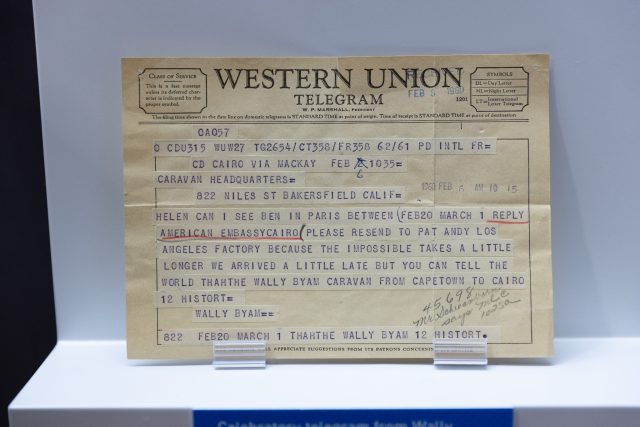 CLASS OF SERVICE
This is a fast message
unless its deferred char-
acter is indicated by the
proper symbol.
WESTERN UNION
TELEGRAM
W. P. MARSHALL, PRESIDENT
FEB 5 1960
1201
SYMBOLS
DL=Day Letter
NL=Night Letter
LT=International Letter Telegram
The filing time shown in the date line on domestic telegrams is STANDARD TIME at point of origin. Time of receipt is STANDARD TIME at point of destination
OA057
O CDU315 WUW27 TG2654/CT358/FR358 62/61 PD INTL FR=
CD CAIRO VIA MACKAY FEB 1035=
6
CARAVAN HEADQUARTERS=
1960 FEB 6 AM 10 15
822 NILES ST BAKERSFIELD CALIF=
HELEN CAN I SEE BEN IN PARIS BETWEEN (FEB20 MARCH 1 REPLY
AMERICAN EMBASSYCAIRO (PLEASE RESEND TO PAT ANDY LOS
ANGELES FACTORY BECAUSE THE IMPOSSIBLE TAKES A LITTLE
LONGER WE ARRIVED A LITTLE LATE BUT YOU CAN TELL THE
WORLD THAHTHE WALLY BYAM CARAVAN FROM CAPETOWN TO CAIRO
12 HISTORT=
WALLY BYAM==
45,698
says
1025a
822 FEB20 MARCH 1 THAHTHE WALLY BYAM 12 HISTORT.
APPRECIATE SUGGESTIONS FROM ITS PATRONS CONCERNING ITS SERVICE
Celebratory telegram from Wally